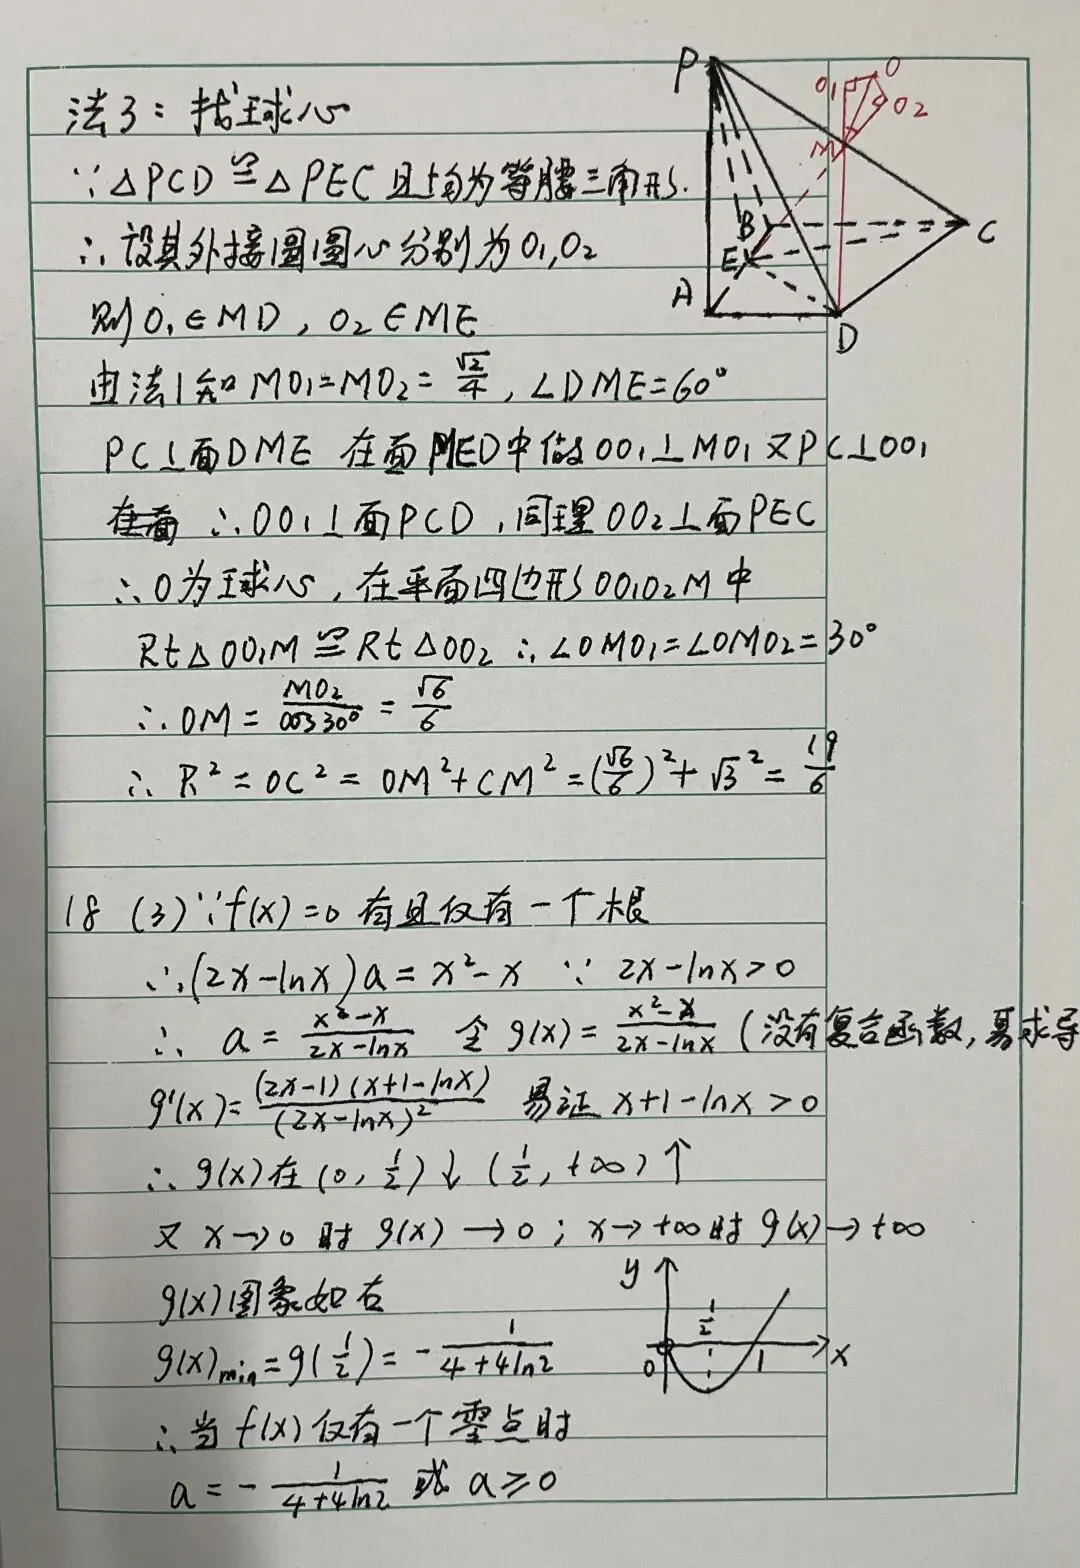 法3：找球心
∵△PCD≌△PEC且均为等腰三角形.
∴设其外接圆圆心分别为O1,O2
则O1∈MD，O2∈ME
由法1知MO1=MO2=√2/4，∠DME=60°
PC⊥面DME 在面MED中做OO1⊥MO1又PC⊥OO1
∴OO1⊥面PCD，同理OO2⊥面PEC
∴O为球心，在平面四边形OO1O2M中
Rt△OO1M≌Rt△OO2 ∴∠OMO1=∠OMO2=30°
∴OM=MO2/cos30°=√6/6
∴R²=OC²=OM²+CM²=(√6/6)²+√3²=19/6
P
O1
O
O2
M
B
C
E
A
D
18 (3)∵f(x)=0有且仅有一个根
∴(2x-lnx)a=x²-x ∵ 2x-lnx>0
∴ a=(x²-x)/(2x-lnx) 令g(x)=(x²-x)/(2x-lnx)（没有复合函数,易求导
g'(x)=(2x-1)(x+1-lnx)/(2x-lnx)² 易证 x+1-lnx>0
∴g(x)在(0,1/2)↓(1/2,+∞)↑
又x→0时g(x)→0；x→+∞时g(x)→+∞
g(x)图象如右
g(x)min=g(1/2)=-1/(4+4ln2)
∴当f(x)仅有一个零点时
a=-1/(4+4ln2) 或 a≥0
y
1/2
0
1
x